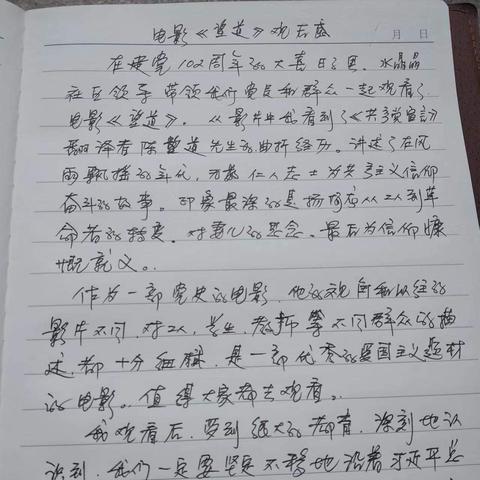 电影《望道》观后感
月 日
在建党102周年的大喜日子里，水晶晶
社区领导带领我们党员和群众一起观看了
电影《望道》。从影片中我看到了《共产党宣言》
翻译者陈望道先生的曲折经历。讲述了在风
雨飘摇的年代，万千仁人志士为共产主义信仰
奋斗的故事。印象最深的是杨阿应从工人到革
命者的转变。对妻儿的思念。最后为信仰慷
慨就义。
作为一部党史的电影，他的视角和以往的
影片不同，对工人、学生、教师等不同群众的描
述，都十分细腻，是一部优秀的爱国主义题材
的电影。值得大家都去观看。
我观看后，受到很大的教育，深刻地认
识到，我们一定要坚定不移地沿着习近平总